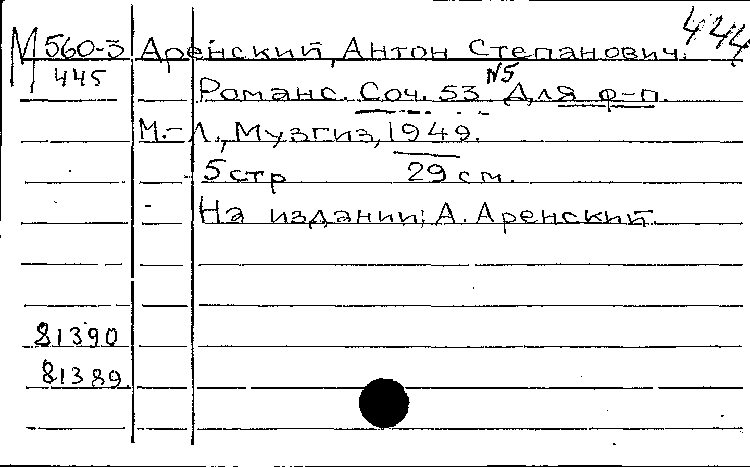 444
М 560-3 Аренский, Антон Степанович.
445
Романс. Соч. 53 N5 Для ф-п.
М.-Л., Музгиз, 1949.
5 стр 29 см.
На издании: А. Аренский.
81390
81389.